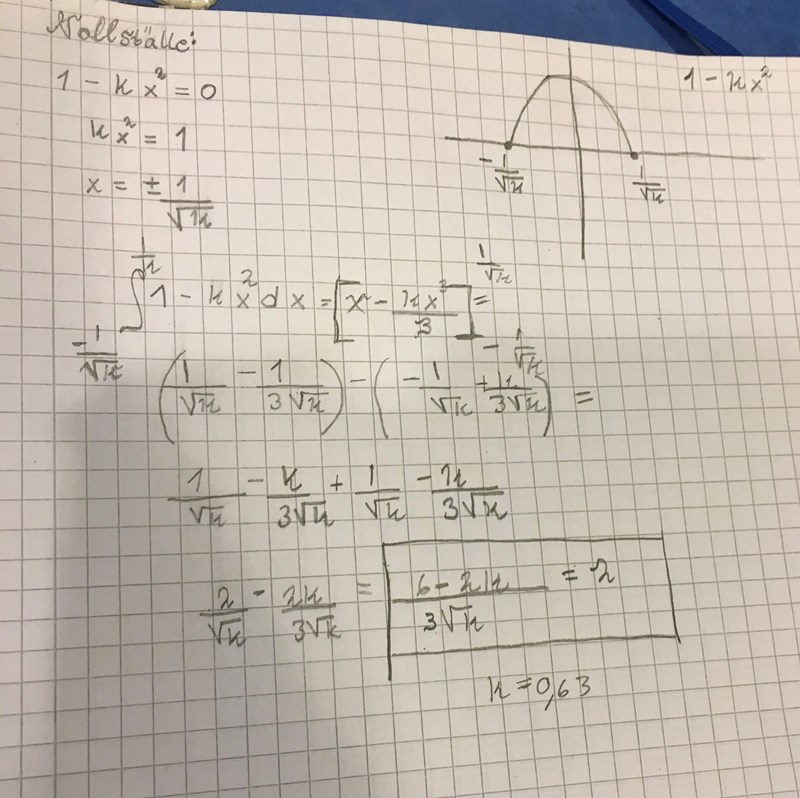 Nollställe:
1 - kx² = 0
kx² = 1
x = ± 1/√k
1 - kx²
-1/√k
1/√k
∫_{-1/√k}^{1/k} 1 - kx² dx = [x - kx³/3]_{-1/√k}^{1/√k} =
(1/√k - 1/3√k) - (-1/√k + k/3√k) =
1/√k - k/3√k + 1/√k - k/3√k
2/√k - 2k/3√k = 6 - 2k/3√k = 2
k = 0,63